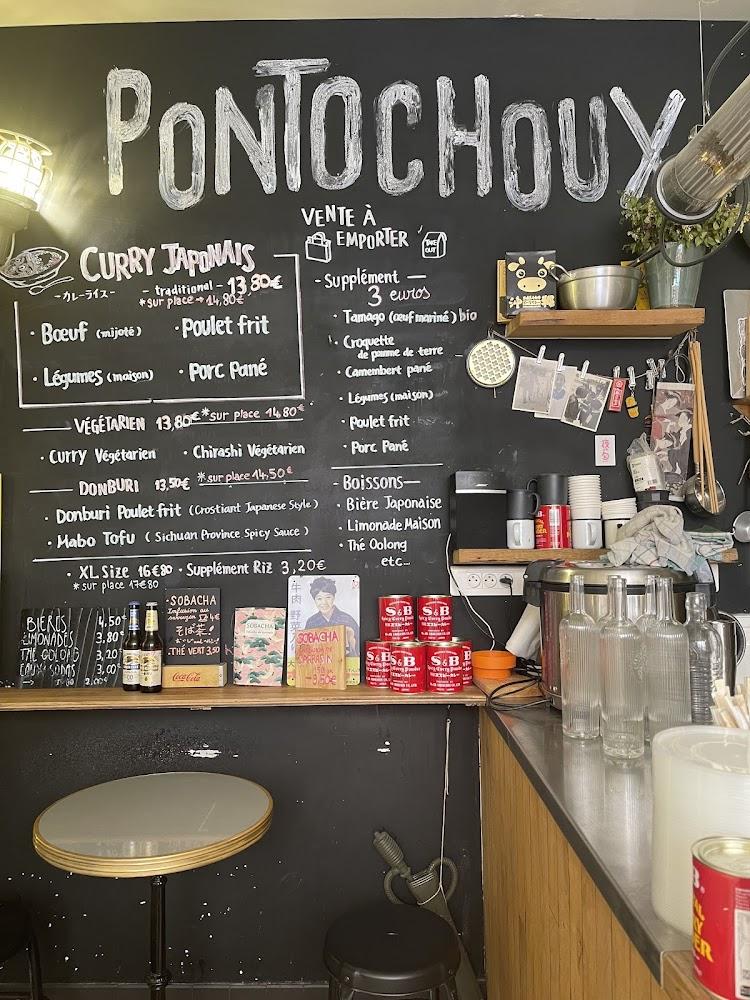 PONTOCHOUX
VENTE À
EMPORTER
TAKE OUT
CURRY JAPONAIS
-カレーライス-
- traditional - 13,80€
*sur place → 14,80€
· Bœuf (mijoté) · Poulet frit
· Légumes (maison) · Porc Pané
VÉGÉTARIEN 13,80€ *sur place 14,80€
· Curry Végétarien · Chirashi Végétarien
DONBURI 13,50€ *sur place 14,50€
· Donburi Poulet frit (Crostiant Japanese Style)
· Mabo Tofu (Sichuan Province Spicy Sauce)
· XL Size 16€80 · Supplément Riz 3,20€
*sur place 17€80
- Supplément —
3 euros
· Tamago (œuf mariné) bio
· Croquette
de pomme de terre
· Camembert pané
· Légumes (maison)
· Poulet frit
· Porc Pané
- Boissons—
· Bière Japonaise
· Limonade Maison
· Thé Oolong
etc...
BIÈRES 4,50€
LIMONADES 3,80€
THÉ OOLONG
SOBACHA
Infusion au
sarrazin 4€
そば茶
THÉ VERT 3,50
Coca-Cola
牛肉 野菜
SOBACHA
INFUSION DE
SARRASIN
3,50€
S&B
S&B
S&B
S&B